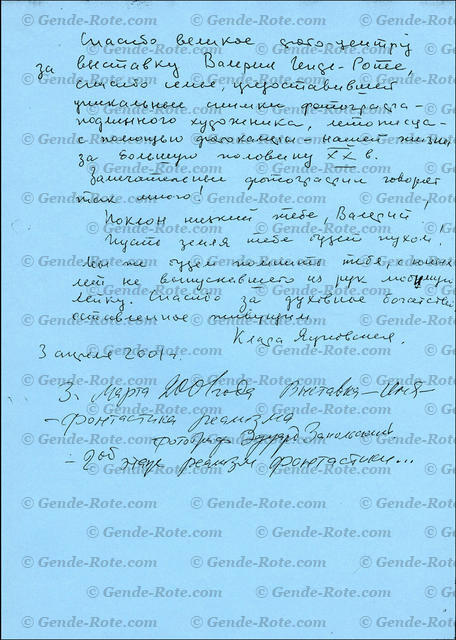 Спасибо великое фото-центру
за выставку Валерия Генде-Роте,
спасибо семье, предоставившей
уникальные снимки фотографа-
подлинного художника, летописца -
с помощью фотокамеры - нашей жизни,
за большую половину XX в.
Замечательные фотографии говорят
так много!
Поклон низкий тебе, Валерий!
Пусть земля тебе будет пухом!
Мы же будем помнить тебя, с юных
лет не выпускавшего из рук любимую
Лейку. Спасибо за духовное богатство,
оставленное живущим
Клара
3 апреля 2001 г.
3. Марта 2001 года Выставка-
-фонтастика реализма
фотограф Эдуард
- реализм фонтастики...
© Gende-Rote.com